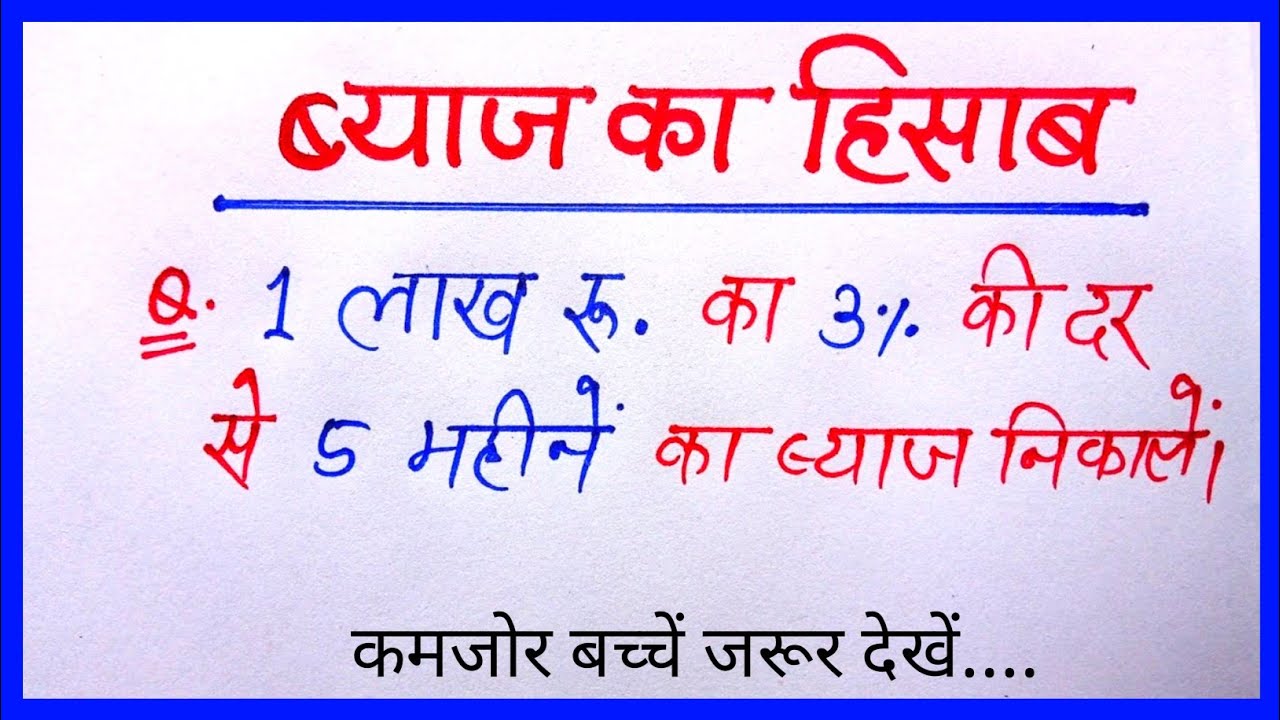 ब्याज का हिसाब
Q. 1 लाख रू. का 3% की दर
से 5 महीनें का ब्याज निकालें।
कमजोर बच्चें जरूर देखें....